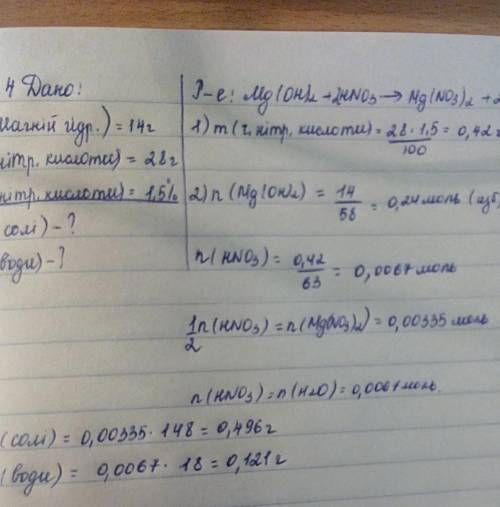 4 Дано:
магній гідр.) = 14г
нітр. кислоти) = 28г
нітр. кислоти) = 1,5%
солі) - ?
води) - ?
Р-е: Mg(OH)₂ + 2HNO₃ → Mg(NO₃)₂ + 2
1) m (ч. нітр. кислоти) = 28 · 1,5 / 100 = 0,42 г
2) n (Mg(OH)₂) = 14 / 58 = 0,24 моль (надл
n (HNO₃) = 0,42 / 63 = 0,0067 моль
1/2 n (HNO₃) = n (Mg(NO₃)₂) = 0,00335 моль
n (HNO₃) = n (H₂O) = 0,0067 моль.
(солі) = 0,00335 · 148 = 0,496 г
(води) = 0,0067 · 18 = 0,121 г